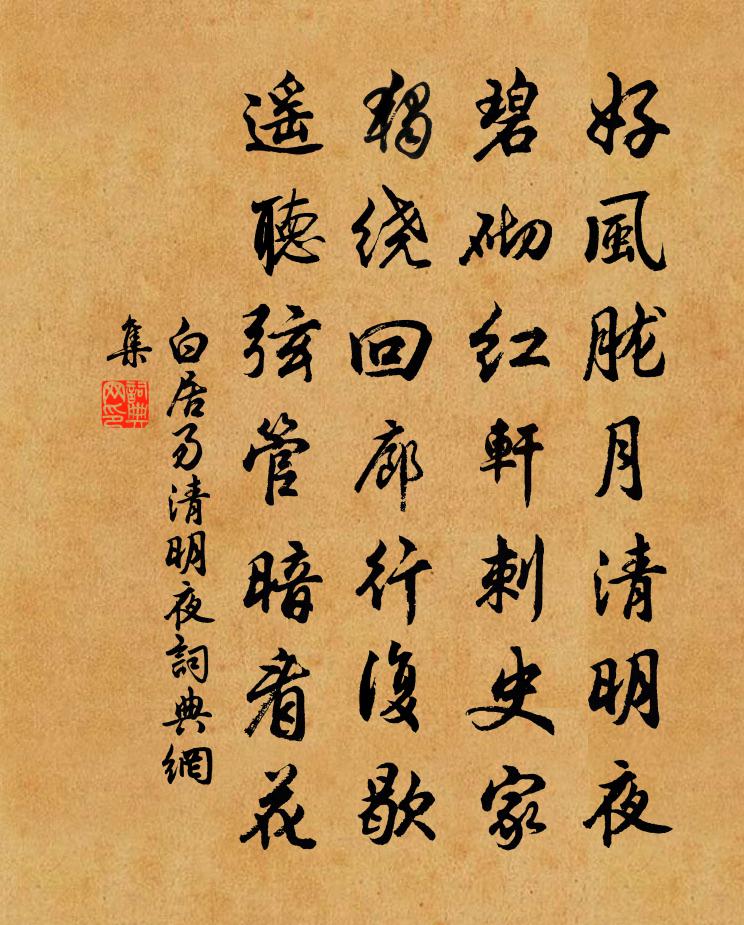 好風胧月清明夜
碧砌红軒刺史家
独绕回廊行復歇
遥聴弦管暗看花
白居易清明夜詞典網
集
詞典
网印